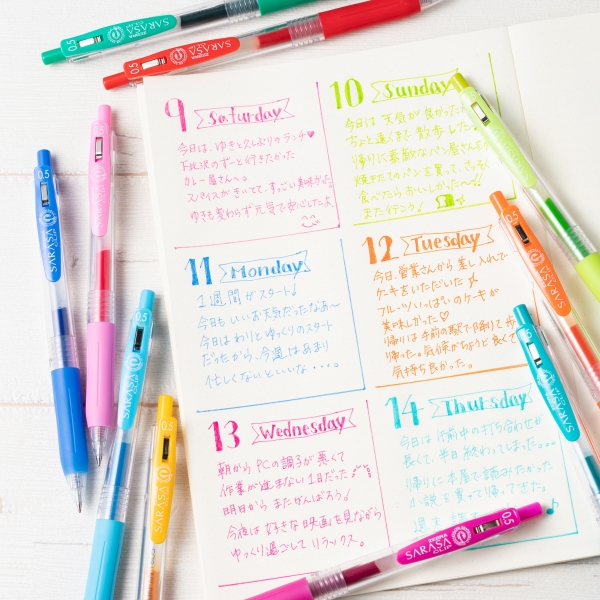 0.5 SARASA
0.5 SARASA CLIP
0.5 SARASA
0.5
0.5 SARASA
SARASA
0.5
0.5
0.5
9 Saturday
今日は、ゆきと久しぶりのランチ♥
下北沢のずーと行きたかった
カレー屋さんへ。
スパイスがきいてて、すっごい美味かった。
ゆきも変わらず元気で安心したよ
10 Sunday
今日は天気が良かった
ちょと遠くまで散歩した
帰りに素敵なパン屋さん
焼きたてのパンを買って、さっそく
食べたらおいしかった〜!!
また行こう!
11 Monday
1週間がスタート!
今日もいいお天気だったなあ〜
今日はわりとゆっくりのスタート
だったから、今週はあまり
忙しくないといいな・・・。
12 Tuesday
今日、営業さんから差し入れで
ケーキをいただいた
フルーツいっぱいのケーキが
美味しかった♡
帰りは手前の駅で降りて歩
帰った。気候がちょうど良くて
気持ち良かった。
13 Wednesday
朝からPCの調子が悪くて
作業が進まない1日だった
明日からまたがんばろう!
今夜は好きな映画を見ながら
ゆっくり過ごしてリラックス。
14 Thursday
今日は午前中の打ち合わせが
長くて、半日終わってしまった...
帰りに本屋で読みたかった
小説を買って帰ってきた。
週末
SARASA CLIP 0.5